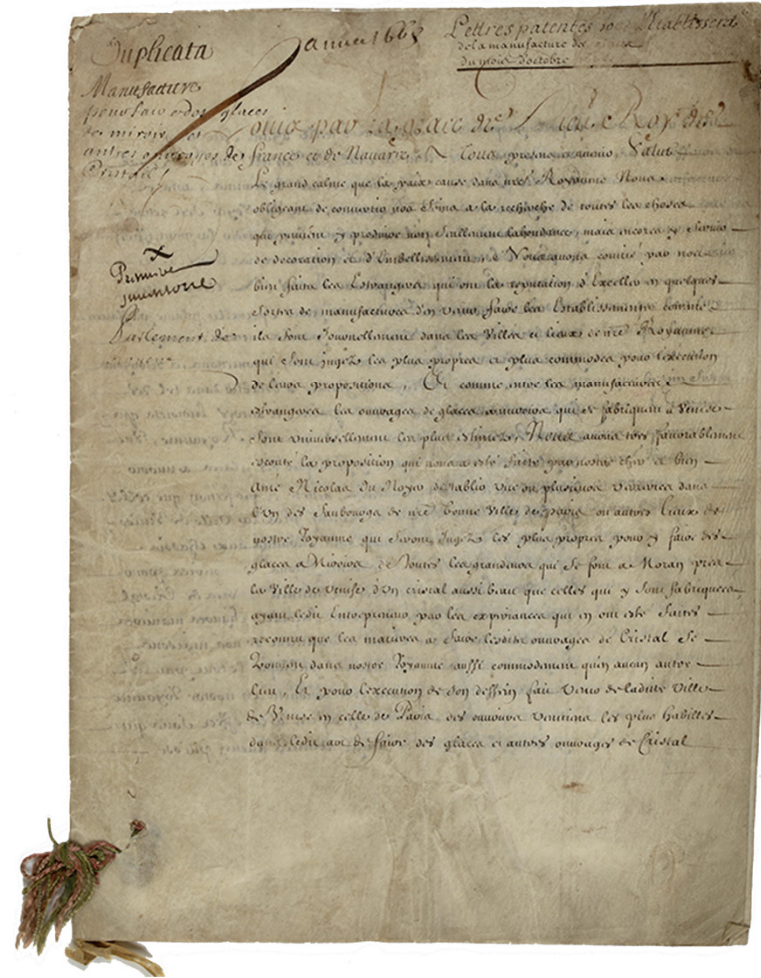 Duplicata
année 1665
Lettres patentes Etablissem
de la manufacture des glaces
du mois d'octobre
Manufacture
pour faire des glaces
de miroir et
autres ouvrages de
Cristail
Premiere
Parlement de
Louis par la grace de Dieu Roy de
france et de Navarre, A tous presens et avenir, Salut
Le grand calme que la paix cause dans nre Royaume Nous
obligeant de convertir nos soins a la recherche de toutes les choses
qui peuvent y produire non seullement labondance, mais encores y servir
de decoration et d'Embellissement, Nous avons convié par nos
bien faits les Estrangers qui ont la reputation d'Exceller en quelques
sortes de manufactures d'en venir faire les Establissements comme
ils font Journellement dans les Villes et lieux de nre Royaume
qui sont jugez les plus propres et plus commodes pour l'execution
de leurs propositions, Et comme entre les manufactures
estrangeres les ouvrages de glaces a miroirs qui se fabriquent a Venise
sont universellement les plus estimez, Nous avons tres favorablement
escouté la proposition qui nous a esté faite par nostre cher et bien
Amé Nicolas du Noyer d'establir une ou plusieurs verreries dans
l'un des Faubourgs de nre bonne Ville de paris ou autres lieux de
nostre Royaume qui seront Jugez les plus propres pour y faire des
glaces a Miroirs de toutes les grandeurs qui se font a Moran pres
la Ville de Venise d'un cristal aussi beau que celles qui y sont fabriquees
ayant ledit Entrepreneur par les experiances qui en ont esté faites
reconnu que les matieres a faire lesdits ouvrages de Cristal se
trouvent dans nostre Royaume aussi commodement qu'en aucun autre
lieu, Et pour l'execution de son dessein fait venir de ladite Ville
de Venise en celle de Paris des ouvriers Venitiens les plus habilles
dans ledit art de faire des glaces et autres ouvrages de Cristal